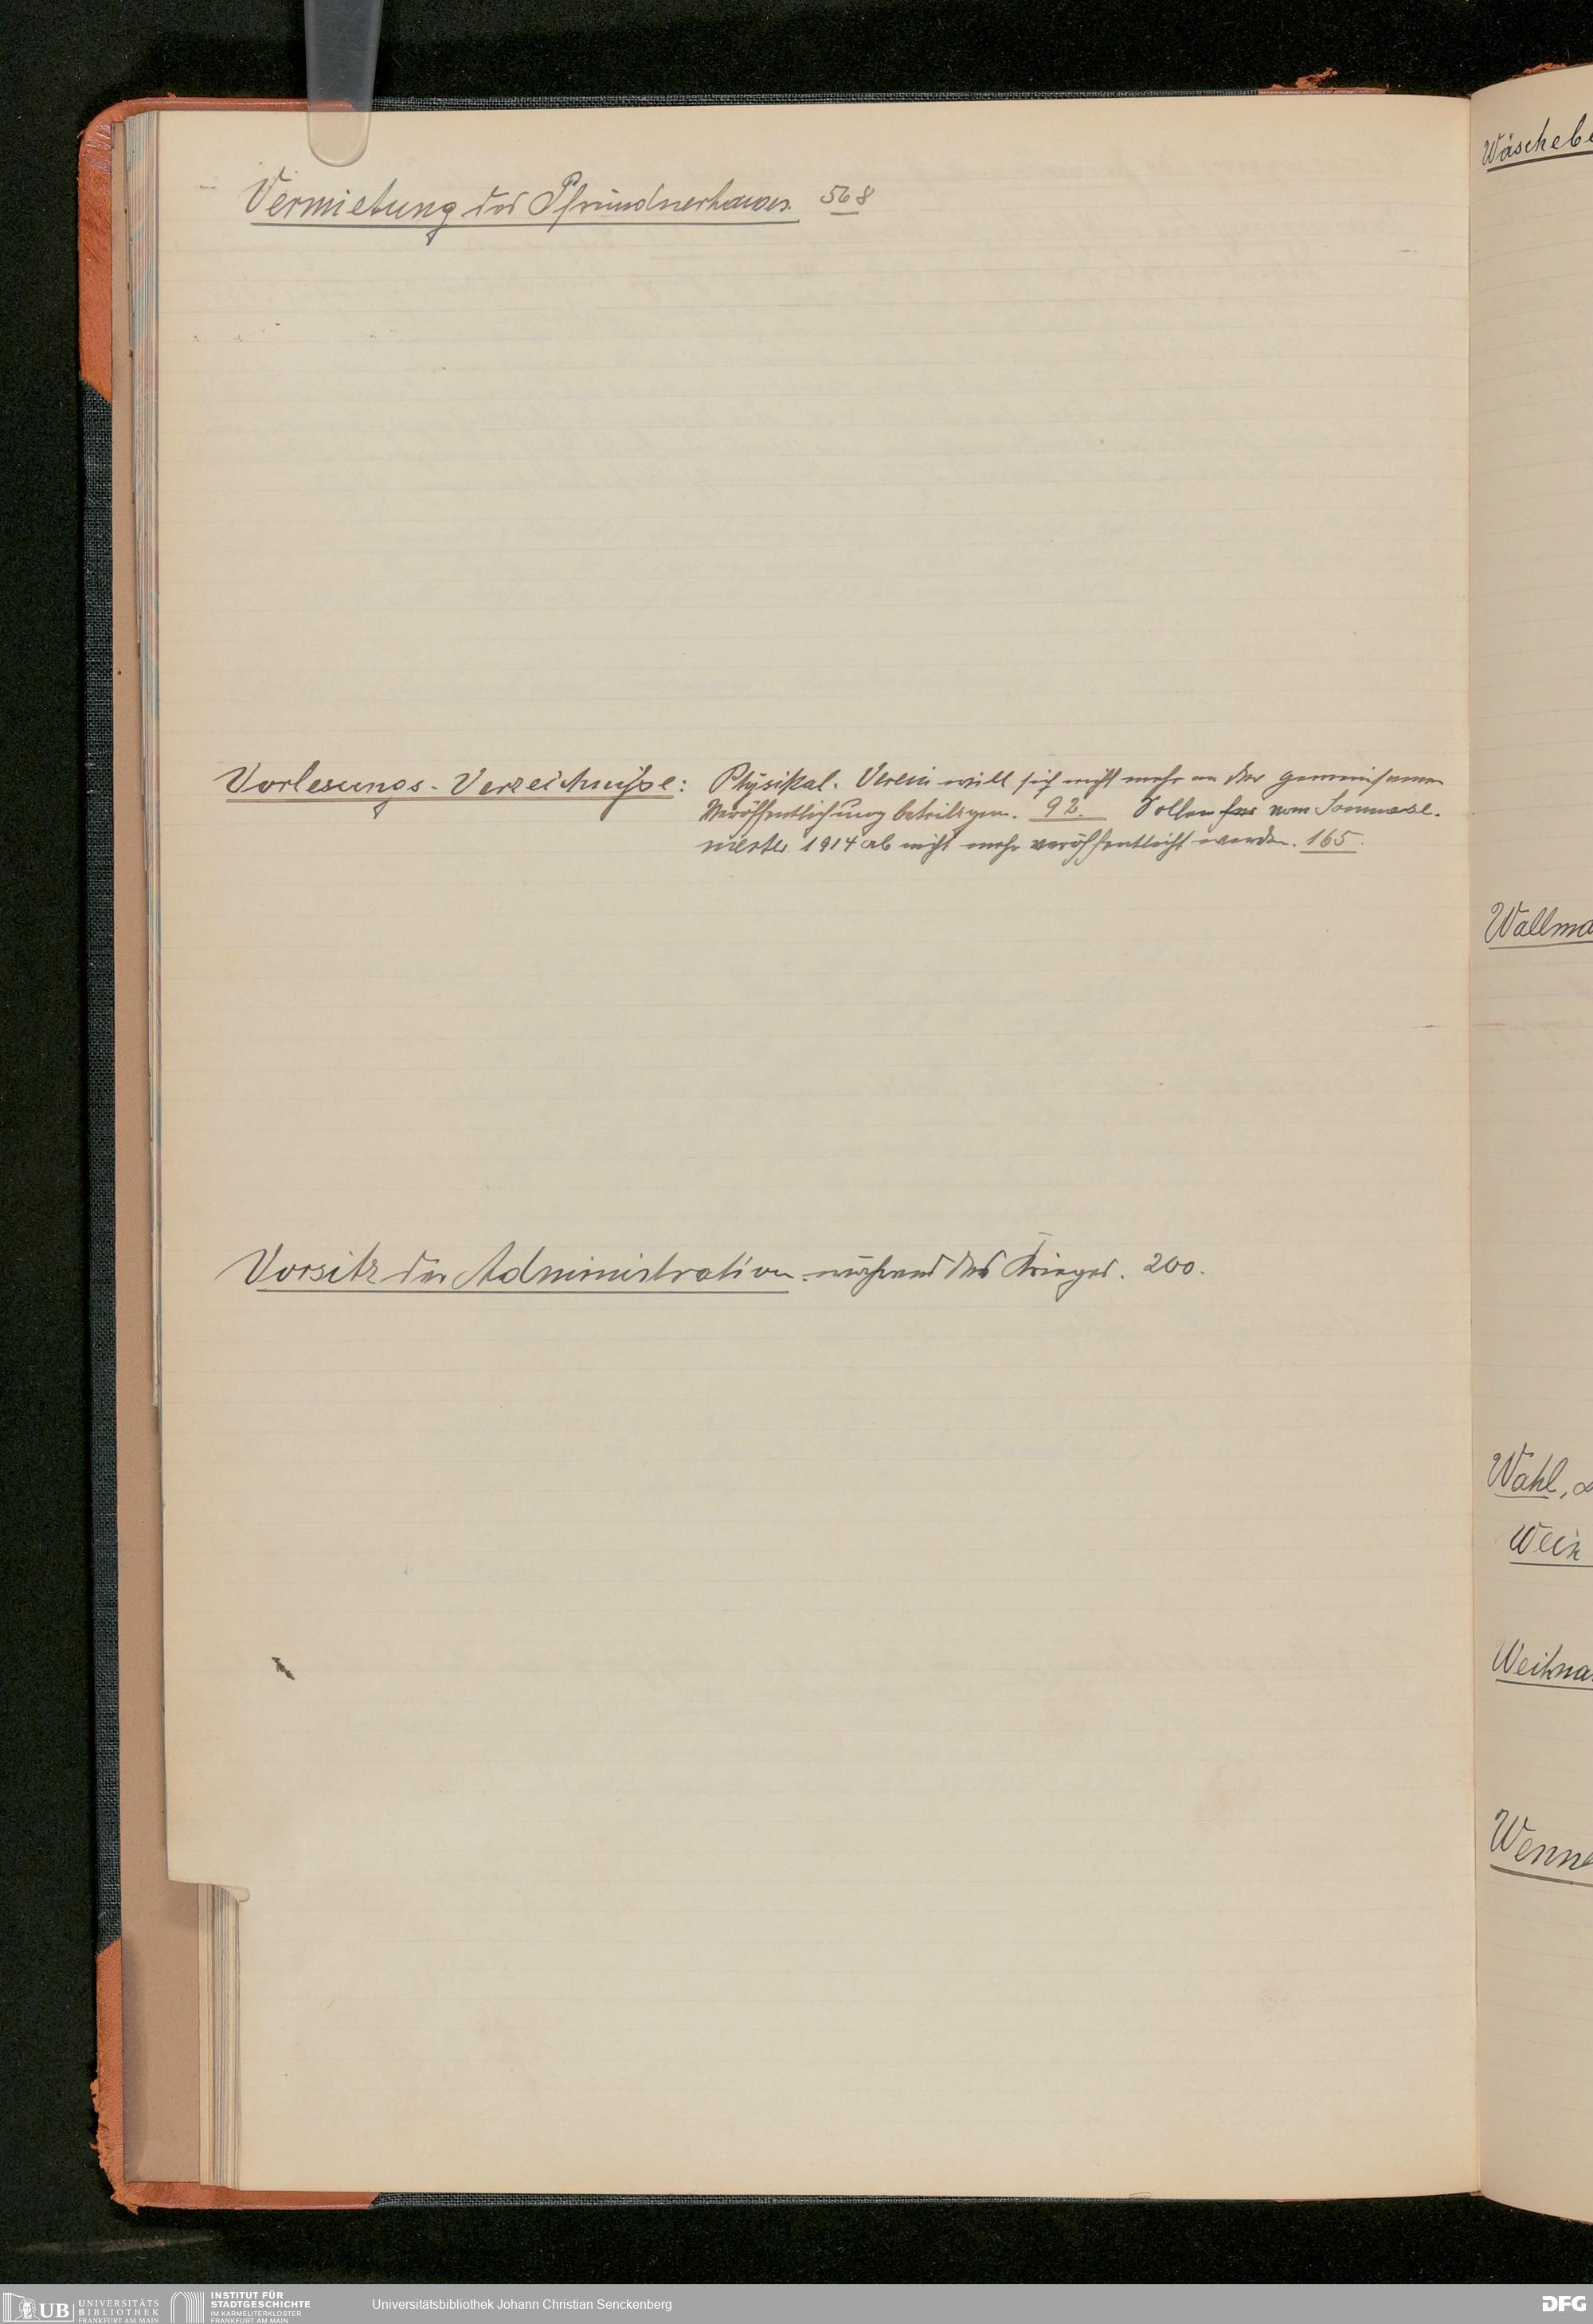 Vermietung des Pfründnerhauses. 568
Vorlesungs-Verzeichniße: Physikal. Verein will sich nicht mehr an der gemeinsamen
Veröffentlichung beteiligen. 92. Sollen vom Sommerse-
mester 1914 ab nicht mehr veröffentlicht werden. 165.
Vorsitz der Administration während des Krieges. 200.
Wäschebe
Wallma
Wahl,
Wein
Weihna
Wenne
UB UNIVERSITÄTS
BIBLIOTHEK
FRANKFURT AM MAIN
INSTITUT FÜR
STADTGESCHICHTE
IM KARMELITERKLOSTER
FRANKFURT AM MAIN
Universitätsbibliothek Johann Christian Senckenberg
DFG